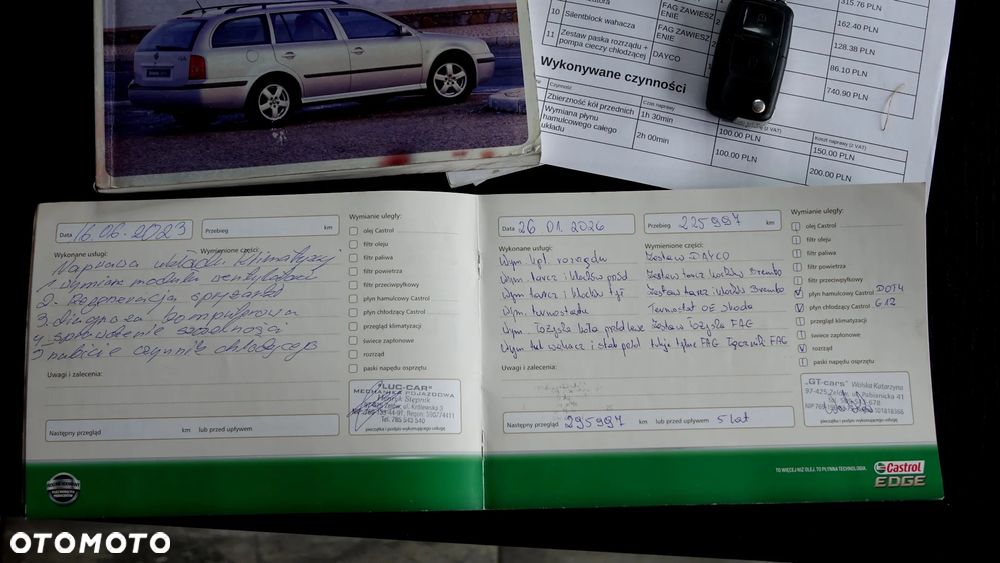 315.76 PLN
10 Silentblock wahacza FAG ZAWIESZENIE 2 162.40 PLN
FAG ZAWIESZENIE 128.38 PLN
11 Zestaw paska rozrządu + pompa cieczy chłodzącej DAYCO 86.10 PLN
740.90 PLN
Wykonywane czynności
Czynność Czas naprawy Koszt naprawy (z VAT)
Zbieżność kół przednich 1h 30min 100.00 PLN 150.00 PLN
Wymiana płynu hamulcowego całego układu 2h 00min 100.00 PLN 200.00 PLN
Data 16.06.2023 Przebieg km
Wymianie uległy:
Wykonane usługi: Wymienione części:
Naprawa układu klimatyzacji
1. wymiana modułu wentylatora
2. Regeneracja sprężarki
3. diagnoza komputerowa
4. sprawdzenie szczelności
5 nabicie czynnik chłodzącego
olej Castrol
filtr oleju
filtr paliwa
filtr powietrza
filtr przeciwpyłkowy
płyn hamulcowy Castrol
płyn chłodzący Castrol
przegląd klimatyzacji
świece zapłonowe
rozrząd
paski napędu osprzętu
Uwagi i zalecenia:
"LUC-CAR"
MECHANIKA POJAZDOWA
Henryk Stępnik
Zelów, ul. Królewska 3
Tel. 785 543 540
pieczątka i podpis wykonującego usługę
Następny przegląd km lub przed upływem
Data 26 01. 2026 Przebieg 225997 km
Wymianie uległy:
Wykonane usługi: Wymienione części:
Wym. kpl. rozrządu Zestaw DAYCO
Wym. tarcz i klocków przód Zestaw tarcz i klocków Brembo
Wym tarcz i klocków tył Zestaw tarcz i klocków Brembo
Wym. termostatu Termostat OE Skoda
Wym. łożyska koła Zestaw łożyska FAG
Wym tul wahacz i stab przód tuleje tylne FAG Łącznik FAG
olej Castrol
filtr oleju
filtr paliwa
filtr powietrza
filtr przeciwpyłkowy
płyn hamulcowy Castrol DOT4
płyn chłodzący Castrol G12
przegląd klimatyzacji
świece zapłonowe
rozrząd
paski napędu osprzętu
Uwagi i zalecenia:
"GT-cars" Wolska Katarzyna
97-425 Zelów, ul. Pabianicka 41
pieczątka i podpis wykonującego usługę
Następny przegląd 295997 km lub przed upływem 5 lat
TO WIĘCEJ NIŻ OLEJ. TO PŁYNNA TECHNOLOGIA.
Castrol
EDGE
OTOMOTO